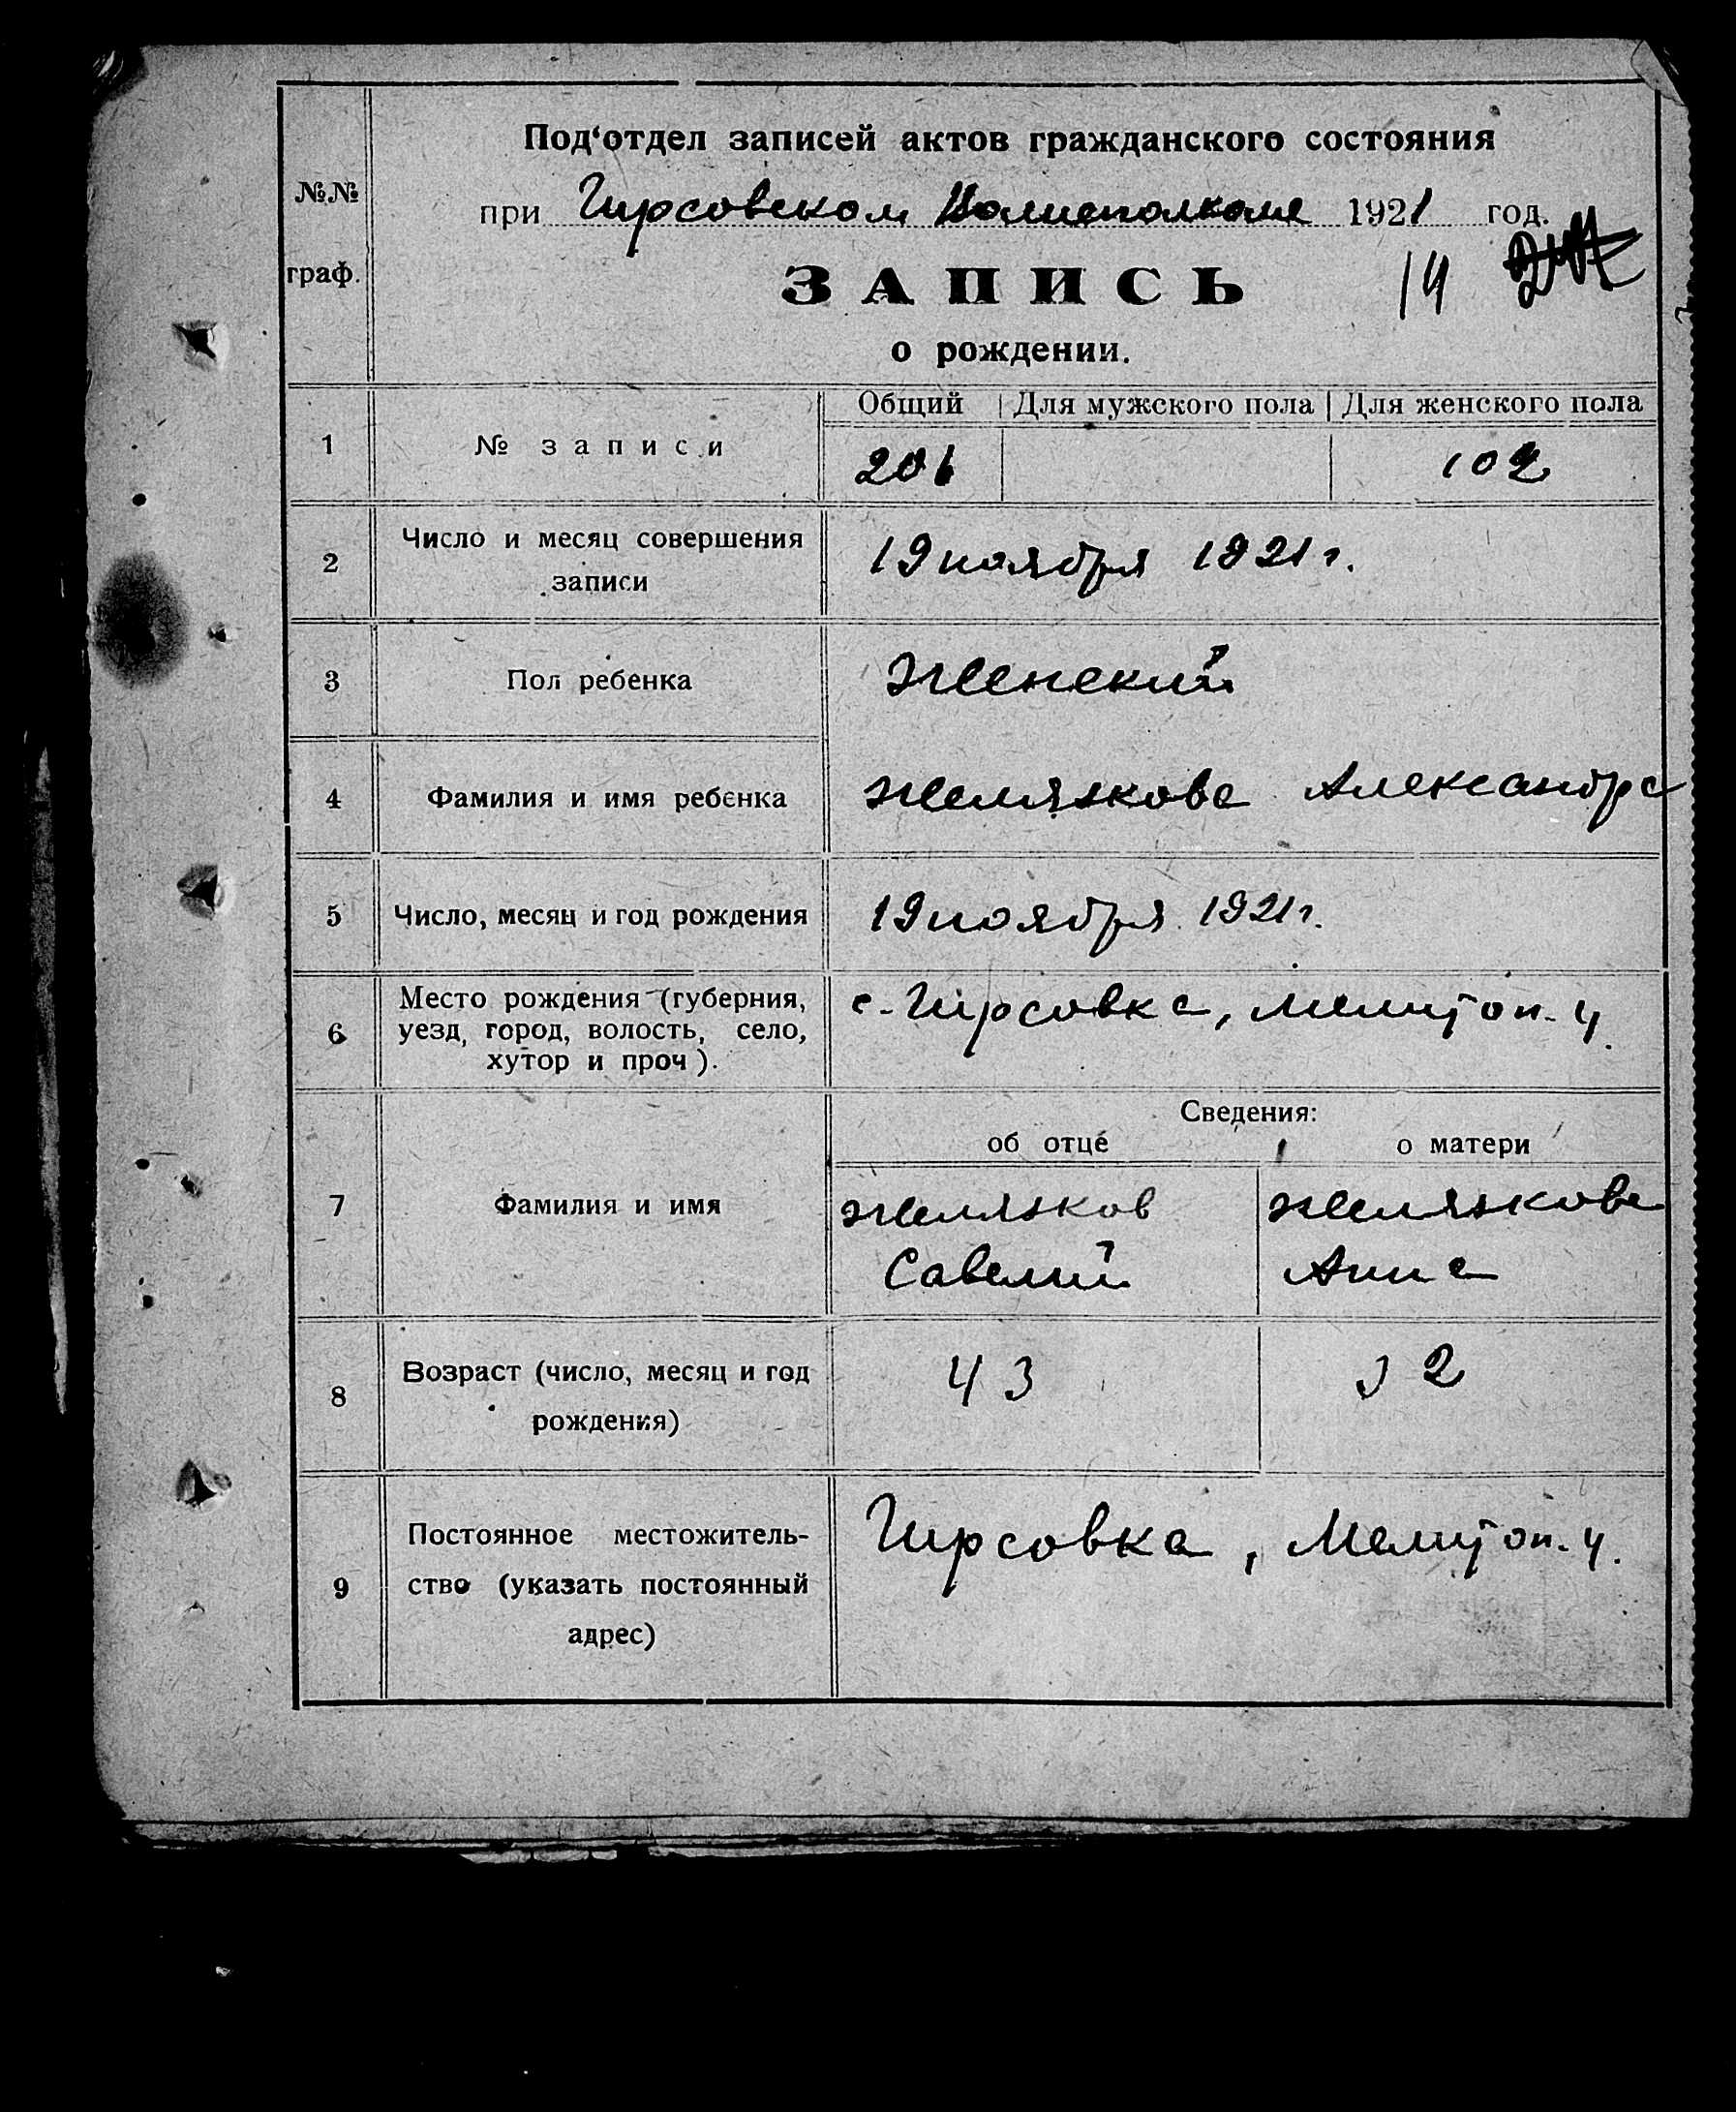 Под‘отдел записей актов гражданского состояния
№№
при Гирсовском Волисполкоме 1921 год.
граф.
ЗАПИСЬ 14
о рождении.
Общий Для мужского пола Для женского пола
1 № записи 206 102
2 Число и месяц совершения записи 19 ноября 1921 г.
3 Пол ребенка Женский
4 Фамилия и имя ребенка Желязкова Александра
5 Число, месяц и год рождения 19 ноября 1921 г.
6 Место рождения (губерния, с. Гирсовка, Мелитоп. у.
уезд, город, волость, село,
хутор и проч).
Сведения:
об отце о матери
7 Фамилия и имя Желязков Желязкова
Савелий Анна
8 Возраст (число, месяц и год 43 32
рождения)
9 Постоянное местожитель- Гирсовка, Мелитоп. у.
ство (указать постоянный
адрес)